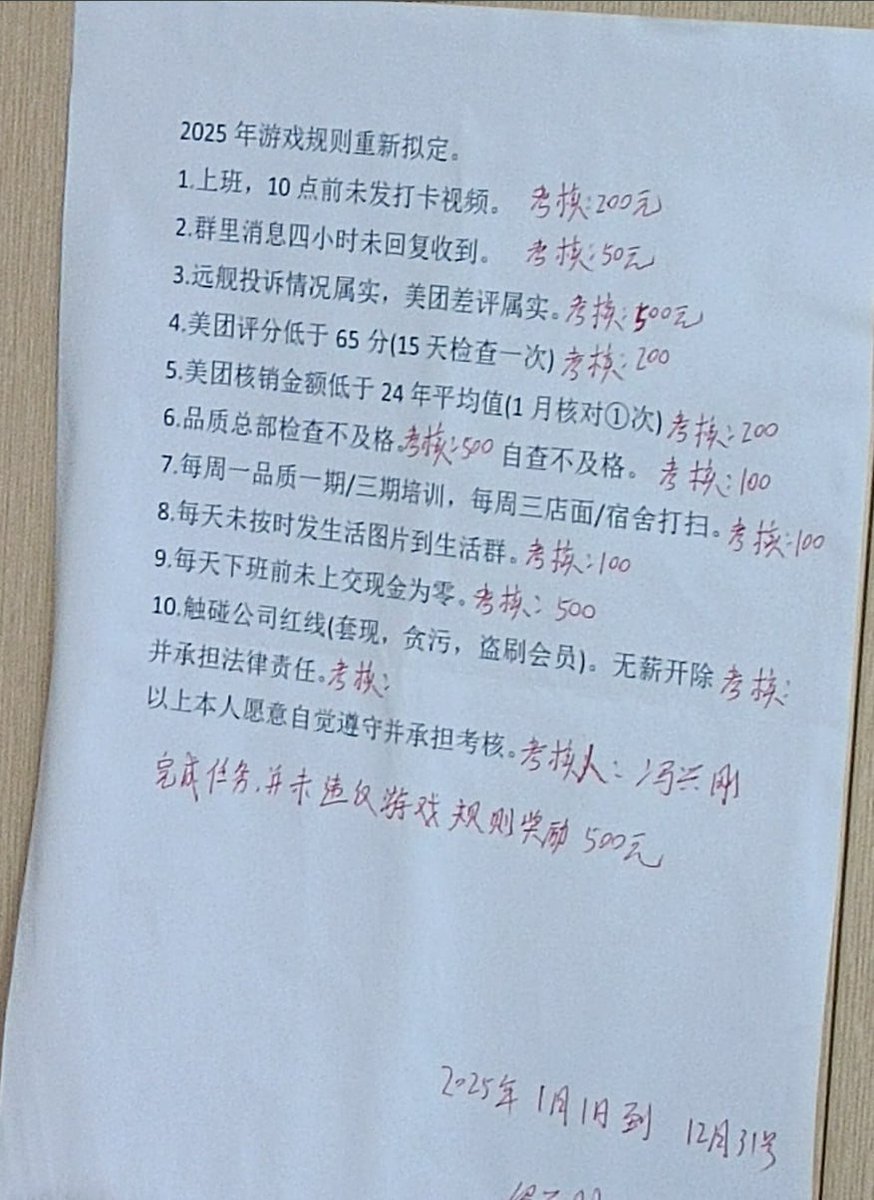 2025 年游戏规则重新拟定。
1.上班，10 点前未发打卡视频。 考核：200元
2.群里消息四小时未回复收到。 考核：50元
3.远舰投诉情况属实，美团差评属实。考核：500元
4.美团评分低于 65 分(15 天检查一次) 考核：200
5.美团核销金额低于 24 年平均值(1 月核对①次) 考核：200
6.品质总部检查不及格。考核：500 自查不及格。 考核：100
7.每周一品质一期/三期培训，每周三店面/宿舍打扫。考核：100
8.每天未按时发生活图片到生活群。考核：100
9.每天下班前未上交现金为零。考核：500
10.触碰公司红线(套现，贪污，盗刷会员)。无薪开除 考核：
并承担法律责任。考核：
以上本人愿意自觉遵守并承担考核。考核人：冯兴刚
完成任务，并未违仅游戏规则奖励 500元
2025年 1月1日到 12月31号